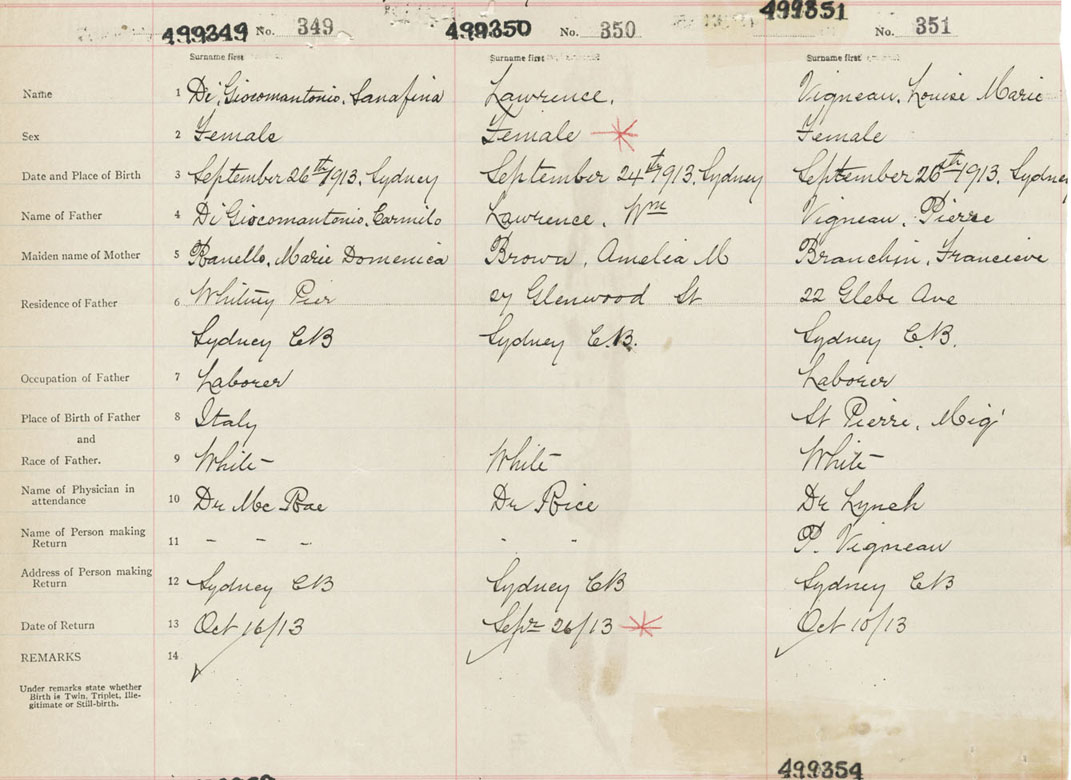 499349 No. 349 499350 No. 350 499351 No. 351
Surname first Surname first Surname first
Name 1 Di Giocomantonio, Sanafina Lawrence. Vigneau, Louise Marie
Sex 2 Female Female Female
Date and Place of Birth 3 September 26th 1913. Sydney September 24th 1913. Sydney September 26th 1913. Sydney
Name of Father 4 Di Giocomantonio, Carmilo Lawrence. Wm Vigneau, Pierre
Maiden name of Mother 5 Ranello, Marie Domenica Brown, Amelia M Branchin, Francieve
Residence of Father 6 Whitney Pier 27 Glenwood St 22 Glebe Ave
Sydney CB Sydney C.B. Sydney C.B.
Occupation of Father 7 Laborer Laborer
Place of Birth of Father 8 Italy St Pierre, Miq
and
Race of Father. 9 White White White
Name of Physician in attendance 10 Dr McRae Dr Rice Dr Lynch
Name of Person making Return 11 - - - P. Vigneau
Address of Person making Return 12 Sydney CB Sydney CB Sydney CB
Date of Return 13 Oct 16/13 Sepr 26/13 Oct 10/13
REMARKS 14
Under remarks state whether
Birth is Twin, Triplet, Ille-
gitimate or Still-birth.
499354